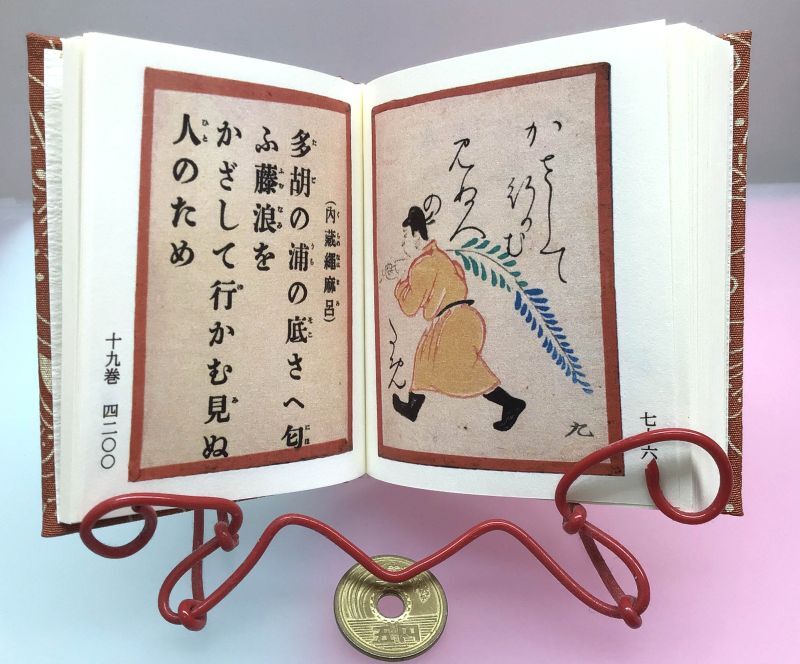 (内蔵繩麻呂)
多胡の浦の底さへ匂
ふ藤浪を
かざして行かむ見ぬ
人のため
十九巻 四二〇〇
かざして
行かむ
見ぬ人
の
九